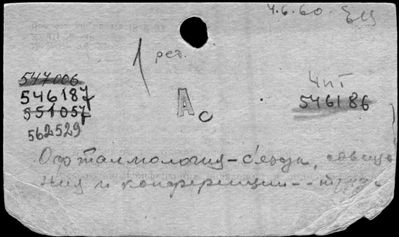 4.6.60.
1 рег.
547006
546187
551057
562529
Ао
Чит
546186
Офталмология – съезды, совеща
ния и конференции -- труды